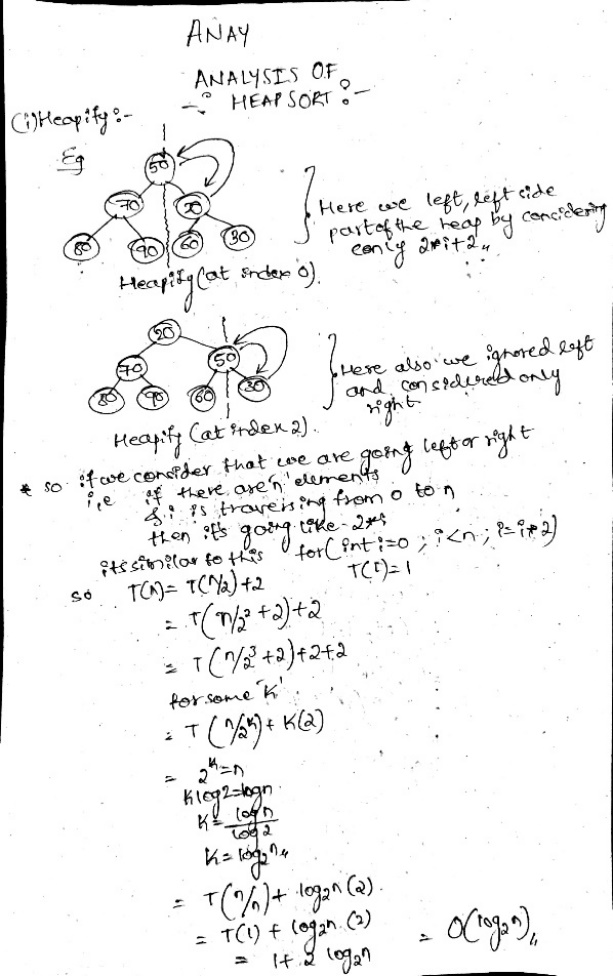 ANAY
ANALYSIS OF
-: HEAPSORT :-
(i) Heapify :-
Eg
50
70 20
80 90 60 30
Here we left, left side
part of the heap by considering
only 2*i+2,,
Heapify (at index 0).
20
70 50
80 90 60 30
Here also we ignored left
and considered only
right.
Heapify (at index 2).
* so if we consider that we are going left or right
i,e if there are 'n' elements
& i is traversing from 0 to n
then it's going like - 2*i
its similar to this for(int i=0; i<n; i=i*2)
T(1)=1
so T(n)= T(n/2)+2
= T(n/2² +2)+2
= T(n/2³ +2)+2+2
for some 'K'.
= T(n/2ᴷ)+ K(2)
= 2ᴷ=n
K log2=logn.
K= logn/log2
K= log₂n,,
= T(n/n)+ log₂n(2).
= T(1) + log₂n.(2)
= 1+ 2 log₂n = O(log₂n),,